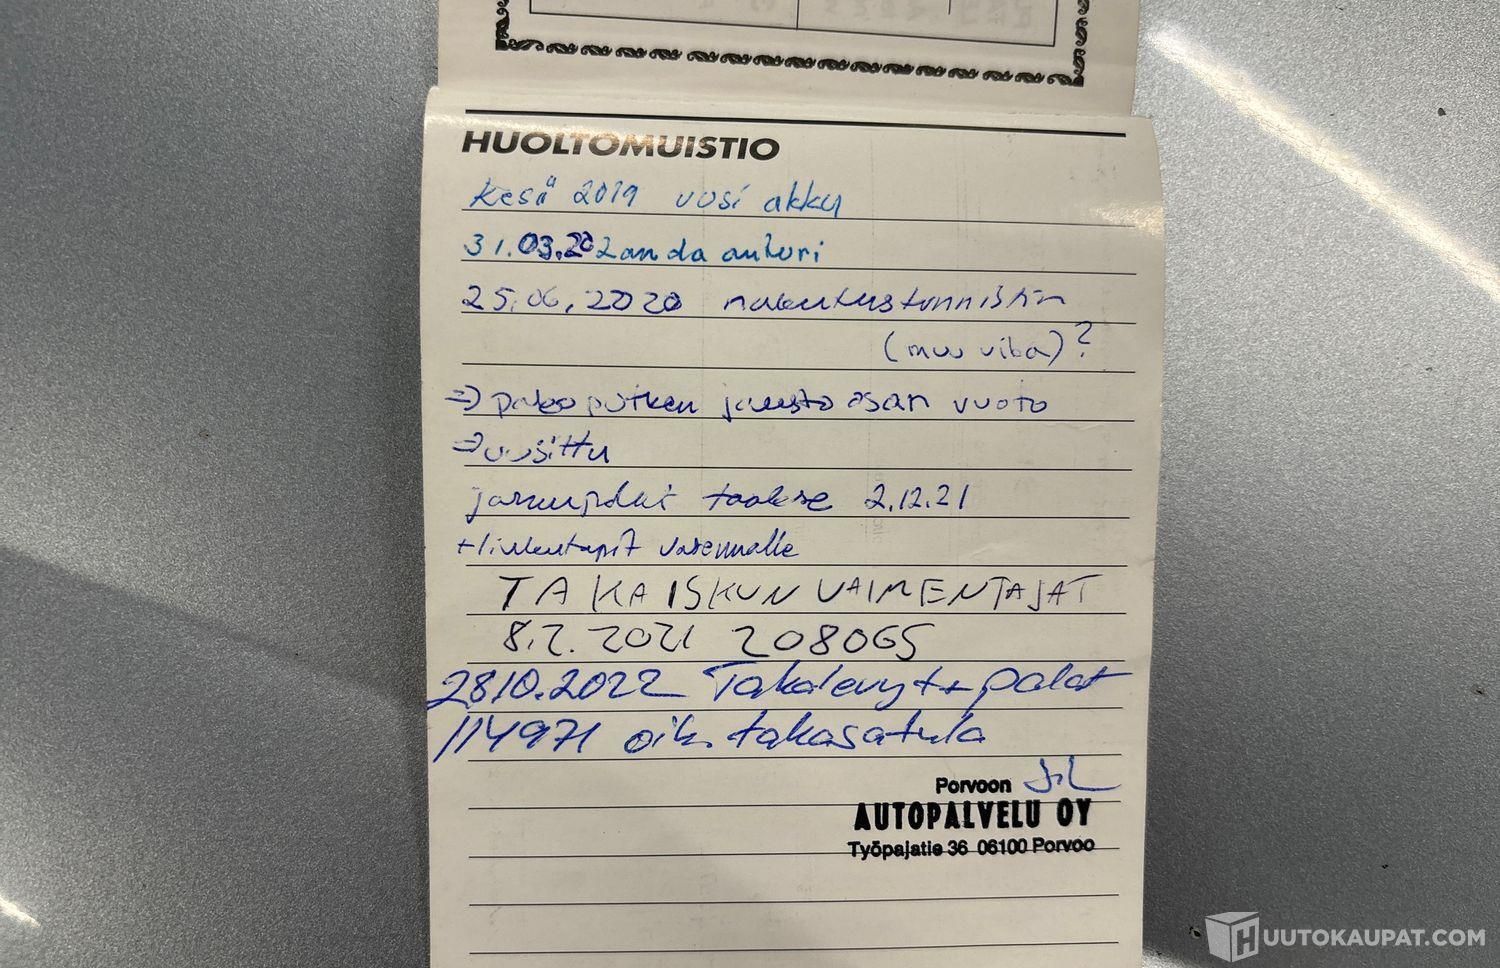 HUOLTOMUISTIO
Kesä 2019 uusi akku
31.03.20 Lamda anturi
25.06.2020 nakutustunnistin
(muu vika)?
=> pakoputken jousto osan vuoto
=> uusittu
jarrupalat taakse 2.12.21
+liukutapit vasemmalle
TAKAISKUNVAIMENTAJAT
8.2.2021 208065
28.10.2022 Takalevyt + palat
114971 oik. takasatula
Porvoon
AUTOPALVELU OY
Työpajatie 36 06100 Porvoo
HUUTOKAUPAT.COM